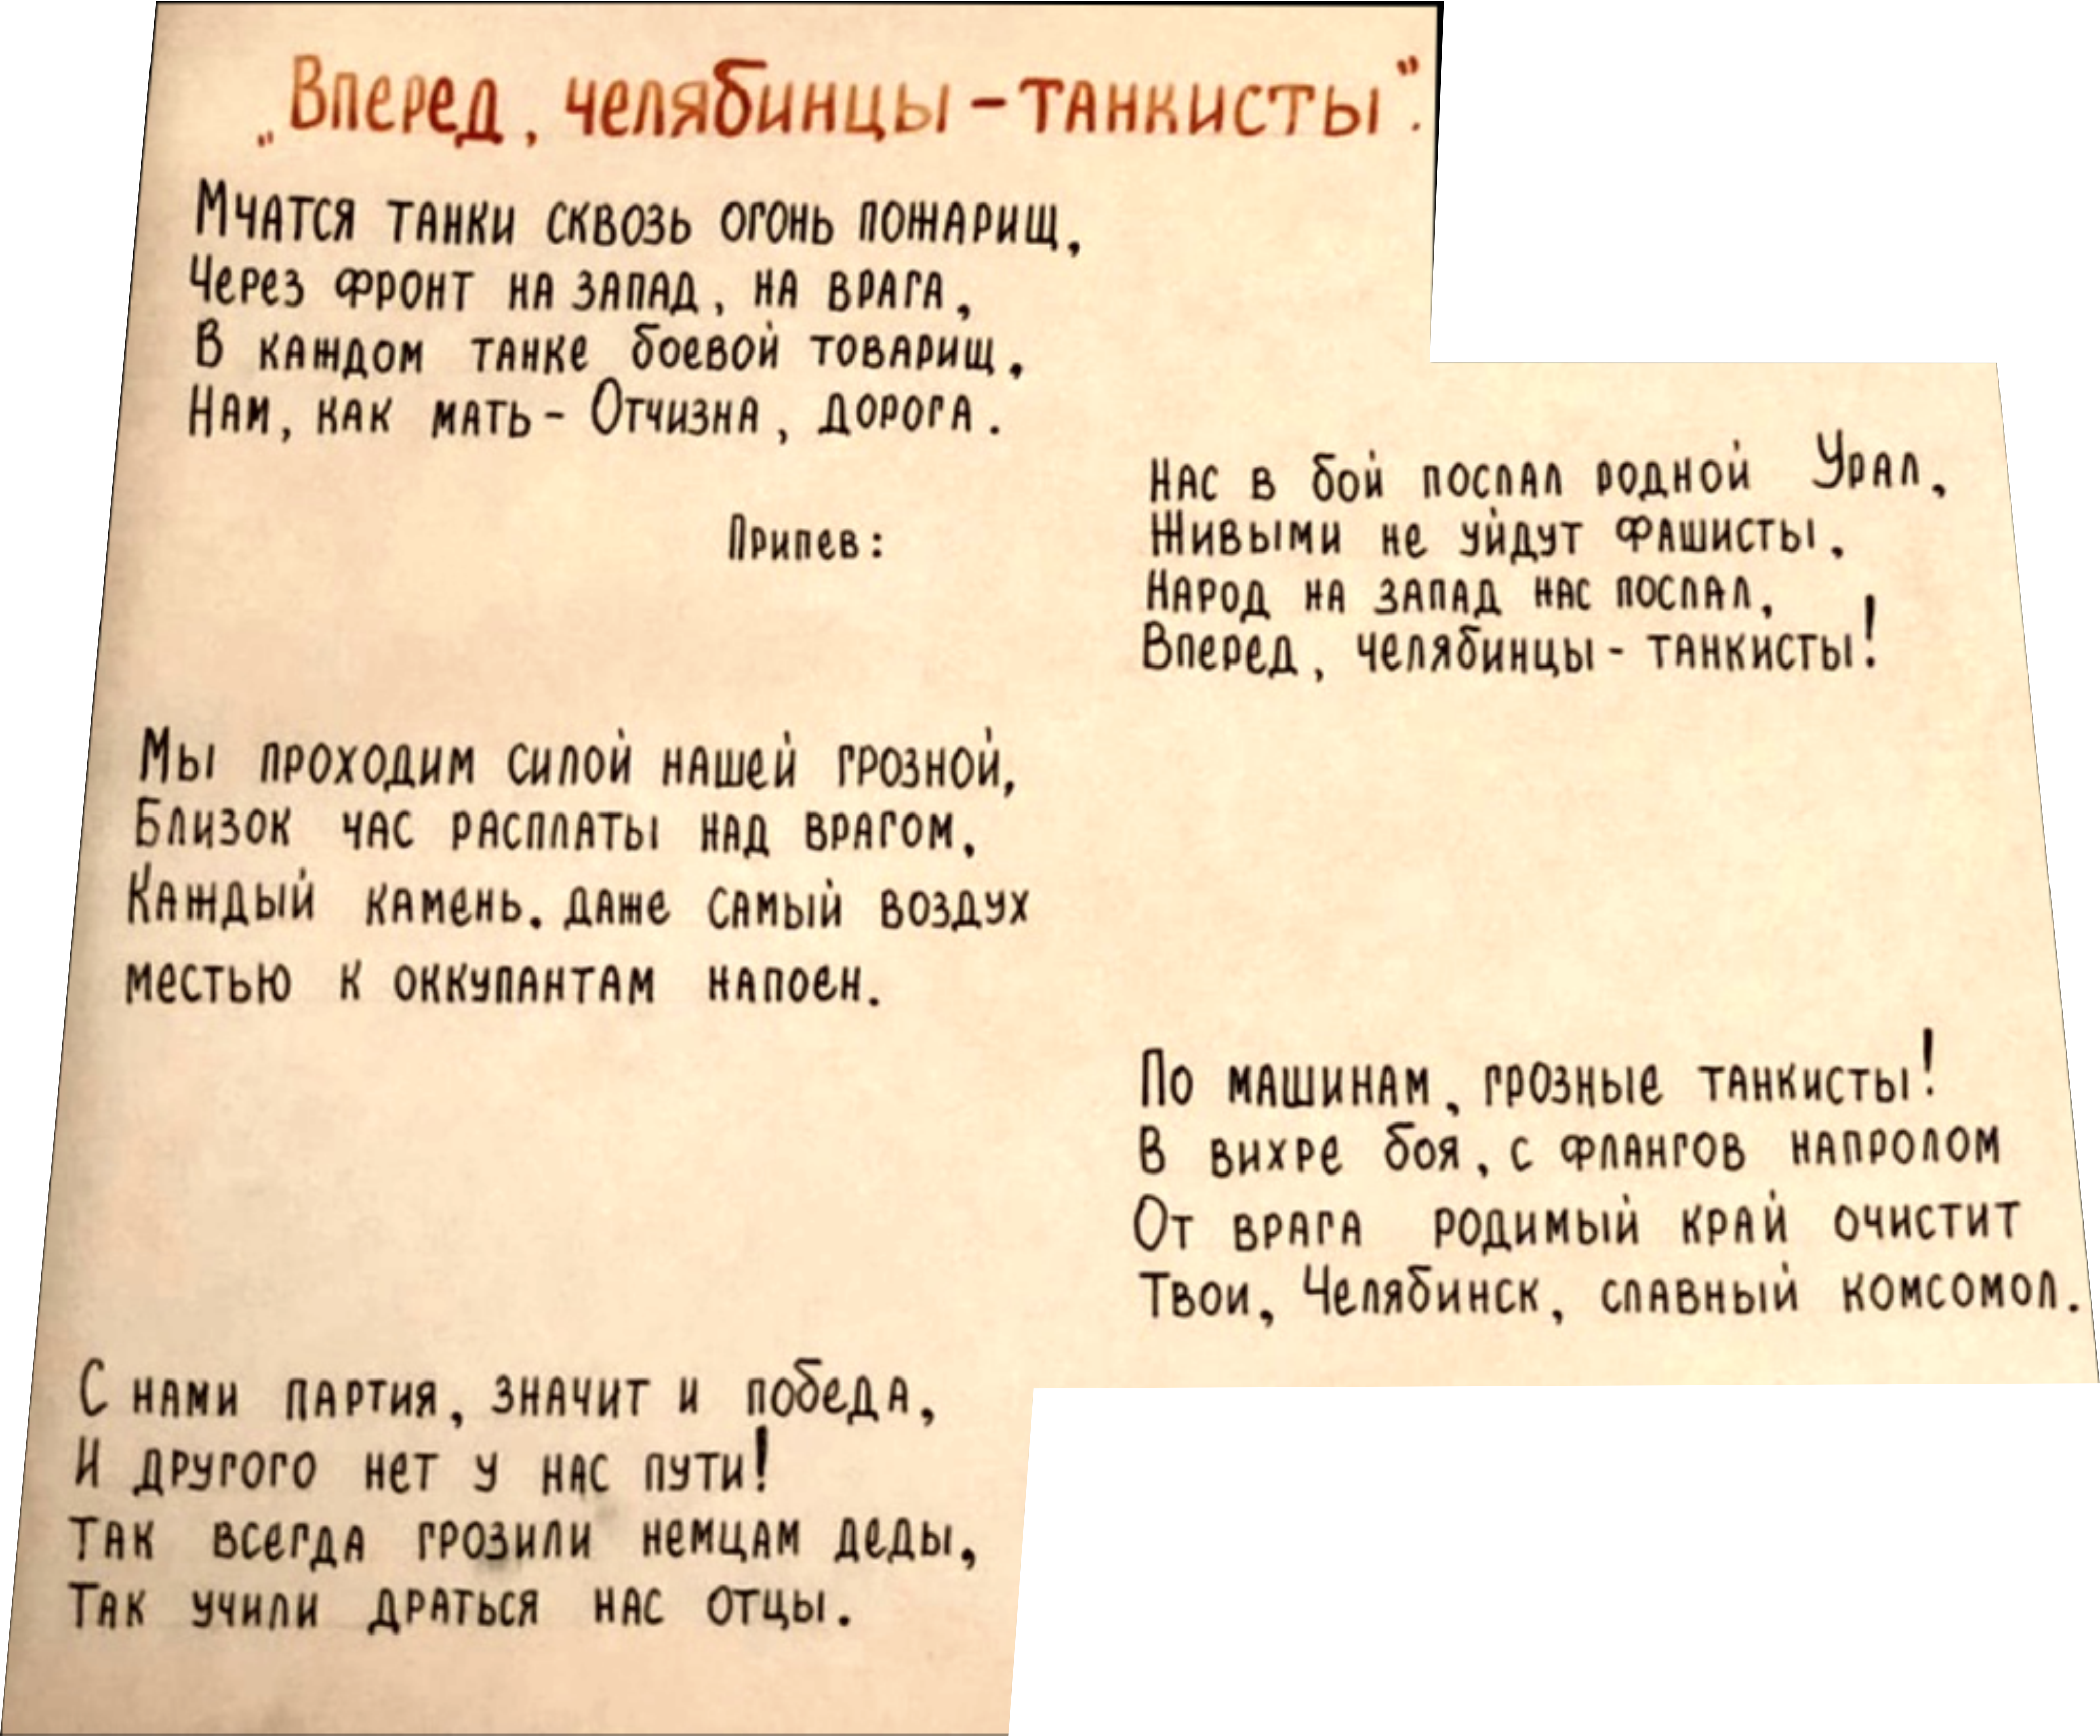 „Вперед, челябинцы-танкисты".
Мчатся танки сквозь огонь пожарищ,
Через фронт на запад, на врага,
В каждом танке боевой товарищ,
Нам, как мать- Отчизна, дорога.
Припев:
Нас в бой послал родной Урал,
Живыми не уйдут фашисты.
Народ на запад нас послал,
Вперед, челябинцы- танкисты!
Мы проходим силой нашей грозной,
Близок час расплаты над врагом,
Каждый камень. даже самый воздух
местью к оккупантам напоен.
По машинам, грозные танкисты!
В вихре боя, с флангов напролом
От врага родимый край очистит
Твои, Челябинск, славный комсомол.
С нами партия, значит и победа,
И другого нет у нас пути!
Так всегда грозили немцам деды,
Так учили драться нас отцы.